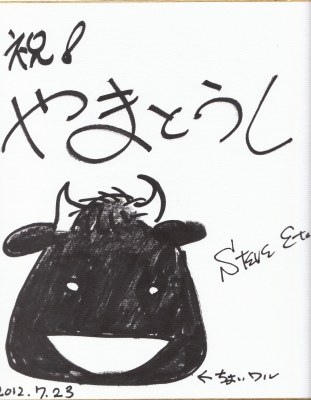 祝!
やまとうし
Steve Eto
←ちょいワル
2012.7.23